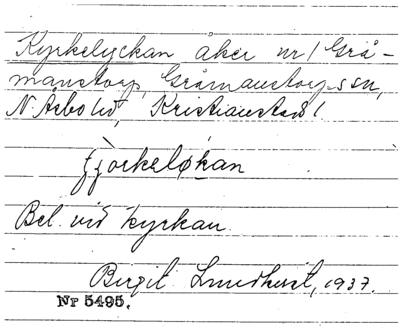 Kyrkelyckan åker nr 1 Grå-
manstorp, Gråmanstorps sn,
N. Åsbo hd, Kristianstads l
Bel. vid kyrkan.
Birgit Lundkvist, 1937.
Nr 5495.